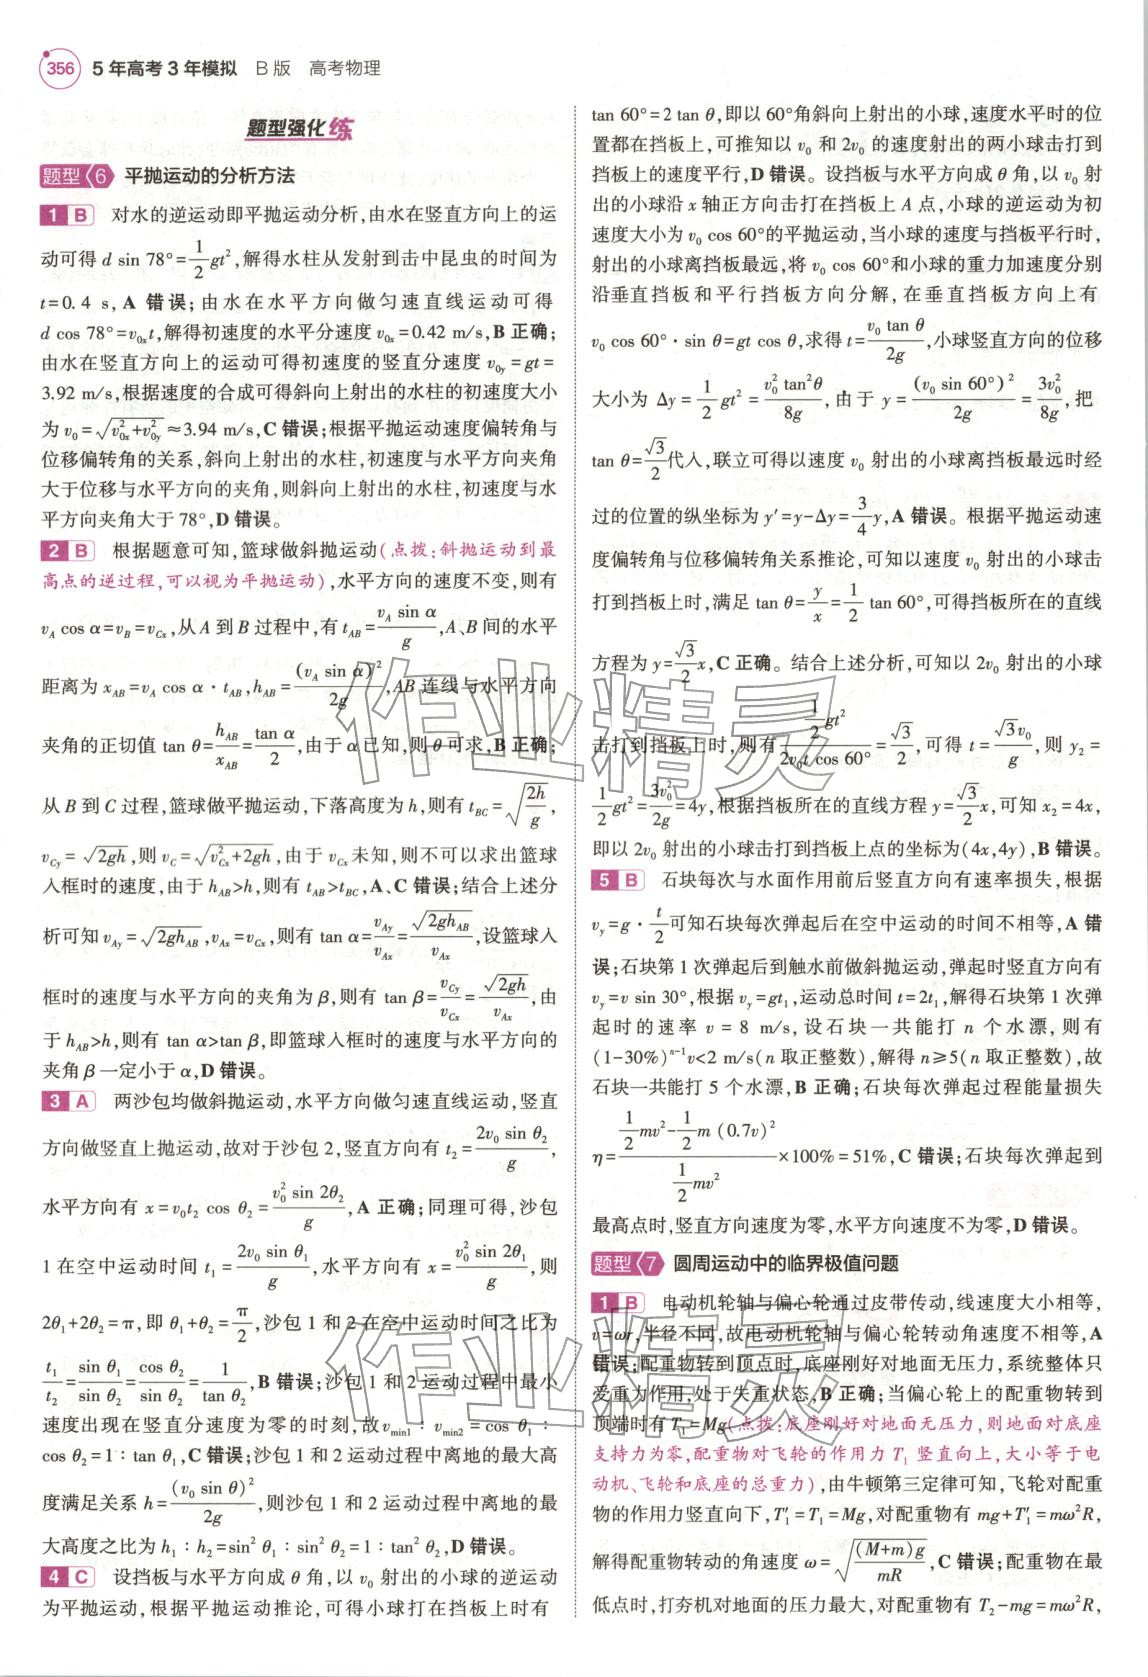 356 5年高考3年模拟 B版 高考物理
题型强化练
题型6 平抛运动的分析方法
1 B 对水的逆运动即平抛运动分析,由水在竖直方向上的运
动可得 d sin 78°=\frac{1}{2}gt²,解得水柱从发射到击中昆虫的时间为
t=0.4 s,A 错误;由水在水平方向做匀速直线运动可得
d cos 78°=v₀ₓt,解得初速度的水平分速度 v₀ₓ=0.42 m/s,B 正确;
由水在竖直方向上的运动可得初速度的竖直分速度 v_{0y}=gt=
3.92 m/s,根据速度的合成可得斜向上射出的水柱的初速度大小
为 v₀=\sqrt{v_{0x}^2+v_{0y}^2}≈3.94 m/s,C 错误;根据平抛运动速度偏转角与
位移偏转角的关系,斜向上射出的水柱,初速度与水平方向夹角
大于位移与水平方向的夹角,则斜向上射出的水柱,初速度与水
平方向夹角大于 78°,D 错误。
2 B 根据题意可知,篮球做斜抛运动(点拨:斜抛运动到最
高点的逆过程,可以视为平抛运动),水平方向的速度不变,则有
v_A cos α=v_B=v_{Cx},从 A 到 B 过程中,有 t_{AB}=\frac{v_A sin α}{g},A、B 间的水平
距离为 x_{AB}=v_A cos α·t_{AB},h_{AB}=\frac{(v_A sin α)^2}{2g},AB 连线与水平方向
夹角的正切值 tan θ=\frac{h_{AB}}{x_{AB}}=\frac{tan α}{2},由于 α 已知,则 θ 可求,B 正确;
从 B 到 C 过程,篮球做平抛运动,下落高度为 h,则有 t_{BC}=\sqrt{\frac{2h}{g}},
v_{Cy}=\sqrt{2gh},则 v_C=\sqrt{v_{Cx}^2+2gh},由于 v_{Cx}未知,则不可以求出篮球
入框时的速度,由于 h_{AB}>h,则有 t_{AB}>t_{BC},A、C 错误;结合上述分
析可知 v_{Ay}=\sqrt{2gh_{AB}},v_{Ax}=v_{Cx},则有 tan α=\frac{v_{Ay}}{v_{Ax}}=\frac{\sqrt{2gh_{AB}}}{v_{Ax}},设篮球入
框时的速度与水平方向的夹角为 β,则有 tan β=\frac{v_{Cy}}{v_{Cx}}=\frac{\sqrt{2gh}}{v_{Ax}},由
于 h_{AB}>h,则有 tan α>tan β,即篮球入框时的速度与水平方向的
夹角 β 一定小于 α,D 错误。
3 A 两沙包均做斜抛运动,水平方向做匀速直线运动,竖直
方向做竖直上抛运动,故对于沙包 2,竖直方向有 t₂=\frac{2v_0 sin θ_2}{g},
水平方向有 x=v₀t₂ cos θ₂=\frac{v_0^2 sin 2θ_2}{g},A 正确;同理可得,沙包
1 在空中运动时间 t₁=\frac{2v_0 sin θ_1}{g},水平方向有 x=\frac{v_0^2 sin 2θ_1}{g},则
2θ₁+2θ₂=π,即 θ₁+θ₂=\frac{π}{2},沙包 1 和 2 在空中运动时间之比为
\frac{t_1}{t_2}=\frac{sin θ_1}{sin θ_2}=\frac{cos θ_2}{sin θ_2}=\frac{1}{tan θ_2},B 错误;沙包 1 和 2 运动过程中最小
速度出现在竖直分速度为零的时刻,故 v_{min1}∶v_{min2}=cos θ₁∶
cos θ₂=1∶tan θ₁,C 错误;沙包 1 和 2 运动过程中离地的最大高
度满足关系 h=\frac{(v_0 sin θ)^2}{2g},则沙包 1 和 2 运动过程中离地的最
大高度之比为 h₁∶h₂=sin² θ₁∶sin² θ₂=1∶tan² θ₂,D 错误。
4 C 设挡板与水平方向成 θ 角,以 v₀ 射出的小球的逆运动
为平抛运动,根据平抛运动推论,可得小球打在挡板上时有
tan 60°=2 tan θ,即以 60°角斜向上射出的小球,速度水平时的位
置都在挡板上,可推知以 v₀ 和 2v₀ 的速度射出的两小球击打到
挡板上的速度平行,D 错误。设挡板与水平方向成 θ 角,以 v₀ 射
出的小球沿 x 轴正方向击打在挡板上 A 点,小球的逆运动为初
速度大小为 v₀ cos 60°的平抛运动,当小球的速度与挡板平行时,
射出的小球离挡板最远,将 v₀ cos 60°和小球的重力加速度分别
沿垂直挡板和平行挡板方向分解,在垂直挡板方向上有
v₀ cos 60°·sin θ=gt cos θ,求得 t=\frac{v_0 tan θ}{2g},小球竖直方向的位移
大小为 Δy=\frac{1}{2}gt²=\frac{v_0^2 tan^2θ}{8g},由于 y=\frac{(v_0 sin 60°)^2}{2g}=\frac{3v_0^2}{8g},把
tan θ=\frac{\sqrt{3}}{2}代入,联立可得以速度 v₀ 射出的小球离挡板最远时经
过的位置的纵坐标为 y′=y-Δy=\frac{3}{4}y,A 错误。根据平抛运动速
度偏转角与位移偏转角关系推论,可知以速度 v₀ 射出的小球击
打到挡板上时,满足 tan θ=\frac{y}{x}=\frac{1}{2} tan 60°,可得挡板所在的直线
方程为 y=\frac{\sqrt{3}}{2}x,C 正确。结合上述分析,可知以 2v₀ 射出的小球
击打到挡板上时,则有\frac{\frac{1}{2}gt^2}{2v_0t cos 60°}=\frac{\sqrt{3}}{2},可得 t=\frac{\sqrt{3}v_0}{g},则 y₂=
\frac{1}{2}gt²=\frac{3v_0^2}{2g}=4y,根据挡板所在的直线方程 y=\frac{\sqrt{3}}{2}x,可知 x₂=4x,
即以 2v₀ 射出的小球击打到挡板上点的坐标为(4x,4y),B 错误。
5 B 石块每次与水面作用前后竖直方向有速率损失,根据
v_y=g·\frac{t}{2}可知石块每次弹起后在空中运动的时间不相等,A 错
误;石块第 1 次弹起后到触水前做斜抛运动,弹起时竖直方向有
v_y=v sin 30°,根据 v_y=gt₁,运动总时间 t=2t₁,解得石块第 1 次弹
起时的速率 v=8 m/s,设石块一共能打 n 个水漂,则有
(1-30%)^{n-1}v<2 m/s(n 取正整数),解得 n≥5(n 取正整数),故
石块一共能打 5 个水漂,B 正确;石块每次弹起过程能量损失
η=\frac{\frac{1}{2}mv^2-\frac{1}{2}m(0.7v)^2}{\frac{1}{2}mv^2}×100%=51%,C 错误;石块每次弹起到
最高点时,竖直方向速度为零,水平方向速度不为零,D 错误。
题型7 圆周运动中的临界极值问题
1 B 电动机轮轴与偏心轮通过皮带传动,线速度大小相等,
v=ωr,半径不同,故电动机轮轴与偏心轮转动角速度不相等,A
错误;配重物转到顶点时,底座刚好对地面无压力,系统整体只
受重力作用,处于失重状态,B 正确;当偏心轮上的配重物转到
顶端时有 T₁=Mg(点拨:底座刚好对地面无压力,则地面对底座
支持力为零,配重物对飞轮的作用力 T₁ 竖直向上,大小等于电
动机、飞轮和底座的总重力),由牛顿第三定律可知,飞轮对配重
物的作用力竖直向下,T₁′=T₁=Mg,对配重物有 mg+T₁′=mω²R,
解得配重物转动的角速度 ω=\sqrt{\frac{(M+m)g}{mR}},C 错误;配重物在最
低点时,打夯机对地面的压力最大,对配重物有 T₂-mg=mω²R,
作业精灵
作业精灵